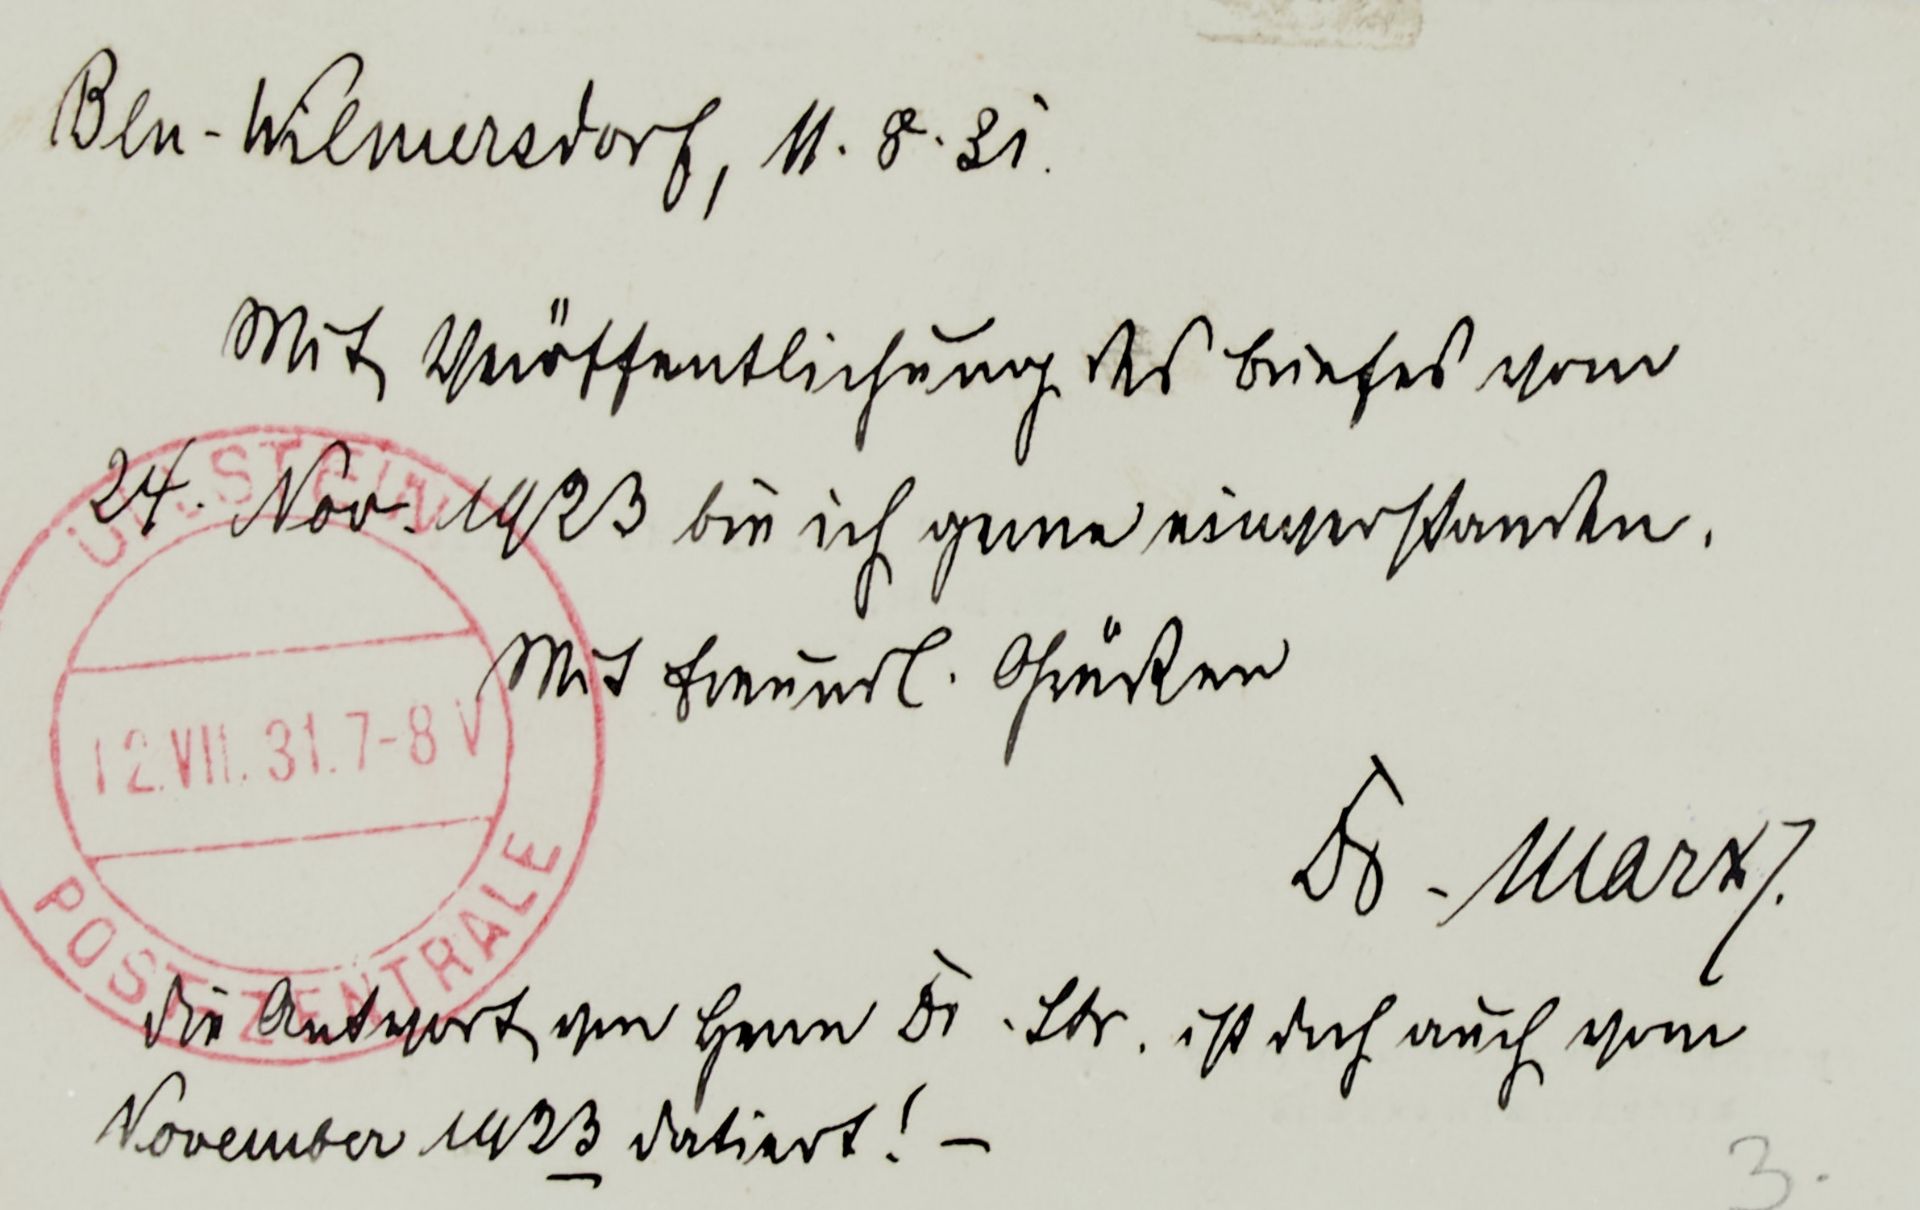 Bln-Wilmersdorf, 11.8.31.
Mit Veröffentlichung des Briefes vom
24. Nov. 1923 bin ich gerne einverstanden.
Mit freundl. Grüßen
Dr. Marx
Die Antwort von Herrn Dr. Str. ist doch auch vom
November 1923 datiert! –
3.
ULLSTEIN
12.VII.31.7-8V
POSTZENTRALE